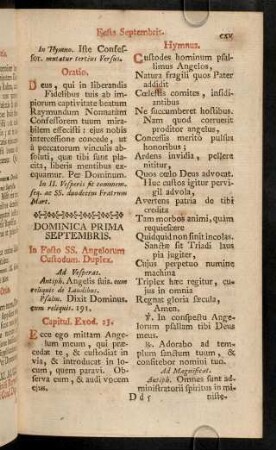 Festa Septembris.
cxv
In Hymno. Iste Confes-
sor. mutatur tertius Versus.
Oratio.
Deus, qui in liberandis
Fidelibus tuis ab im-
piorum captivitate beatum
Raymundum Nonnatum
Confessorem tuum mira-
bilem effecisti: ejus nobis
intercessione concede, ut
à peccatorum vinculis ab-
soluti, quæ tibi sunt pla-
cita, liberis mentibus exe-
quamur. Per Dominum.
In II. Vesperis fit commem.
seq. ac SS. duodecim Fratrum
Mart.
DOMINICA PRIMA
SEPTEMBRIS.
In Festo SS. Angelorum
Custodum. Duplex.
Ad Vesperas.
Antiph. Angelis suis. cum
reliquis de Laudibus.
Psalm. Dixit Dominus.
cum reliquis. 191.
Capitul. Exod. 23.
Ecce ego mittam Ange-
lum meum, qui præ-
cedat te, & custodiat in
via, & introducat in lo-
cum, quem paravi. Ob-
serva eum, & audi vocem
ejus.
Hymnus.
Custodes hominum psal-
limus Angelos,
Natura fragili quos Pater
addidit
Cœlestis comites, insidi-
antibus
Ne succumberet hostibus.
Nam quod corruerit
proditor angelus,
Concessis meritò pulsus
honoribus;
Ardens invidia, pellere
nititur,
Quos cœlo Deus advocat.
Huc custos igitur pervi-
gil advola,
Avertens patria de tibi
credita
Tam morbos animi, quàm
requiescere
Quidquid non sinit incolas.
Sanctæ sit Triadi laus
pia jugiter,
Cujus perpetuo numine
machina
Triplex hæc regitur, cu-
jus in omnia
Regnat gloria sæcula,
Amen.
℣. In conspectu Ange-
lorum psallam tibi Deus
meus.
℟. Adorabo ad tem-
plum sanctum tuum, &
confitebor nomini tuo.
Ad Magnificat.
Antiph. Omnes sunt ad-
ministratorii spiritus in mi-
D d 5
niste-